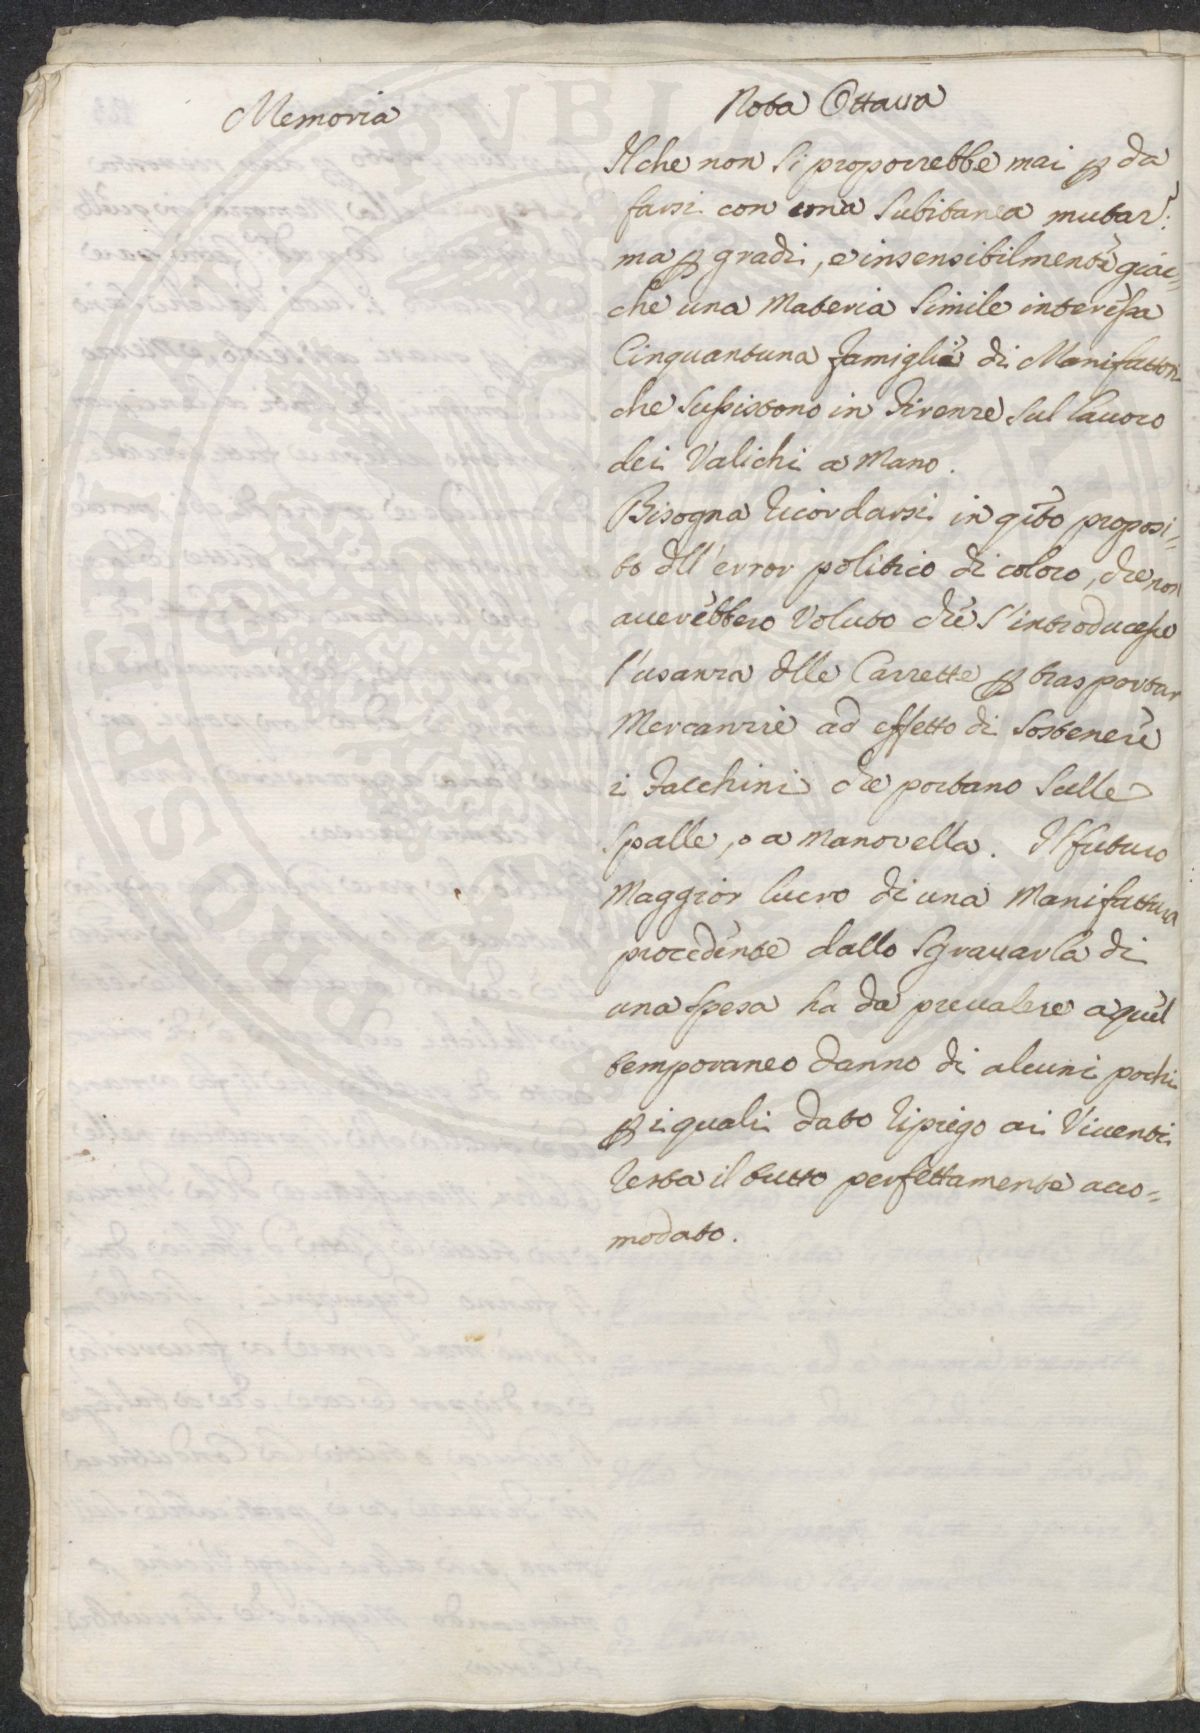 Memoria
Nota Ottava
Il che non si proporrebbe mai p da
farsi con una subitanea mutaz:
ma p gradi, e insensibilmente giac=
che una Materia simile interessa
Cinquantuna famiglie di Manifattori
che sussistono in Firenze sul lavoro
dei Valichi a Mano.
Bisogna ricordarsi in qsto proposi=
to dll'error politico di coloro, che non
averebbero voluto che s'introducesse
l'usanza dlle Carrette p trasportar
Mercanzie ad effetto di sostenere
i Facchini che portano sulle
spalle, o a Manovella. Il futuro
Maggior lucro di una Manifattura
procedente dallo sgravarla di
una spesa ha da prevalere a quel
temporaneo danno di alcuni pochi
p i quali dato ripiego ai Viventi
resta il tutto perfettamente acco=
modato.